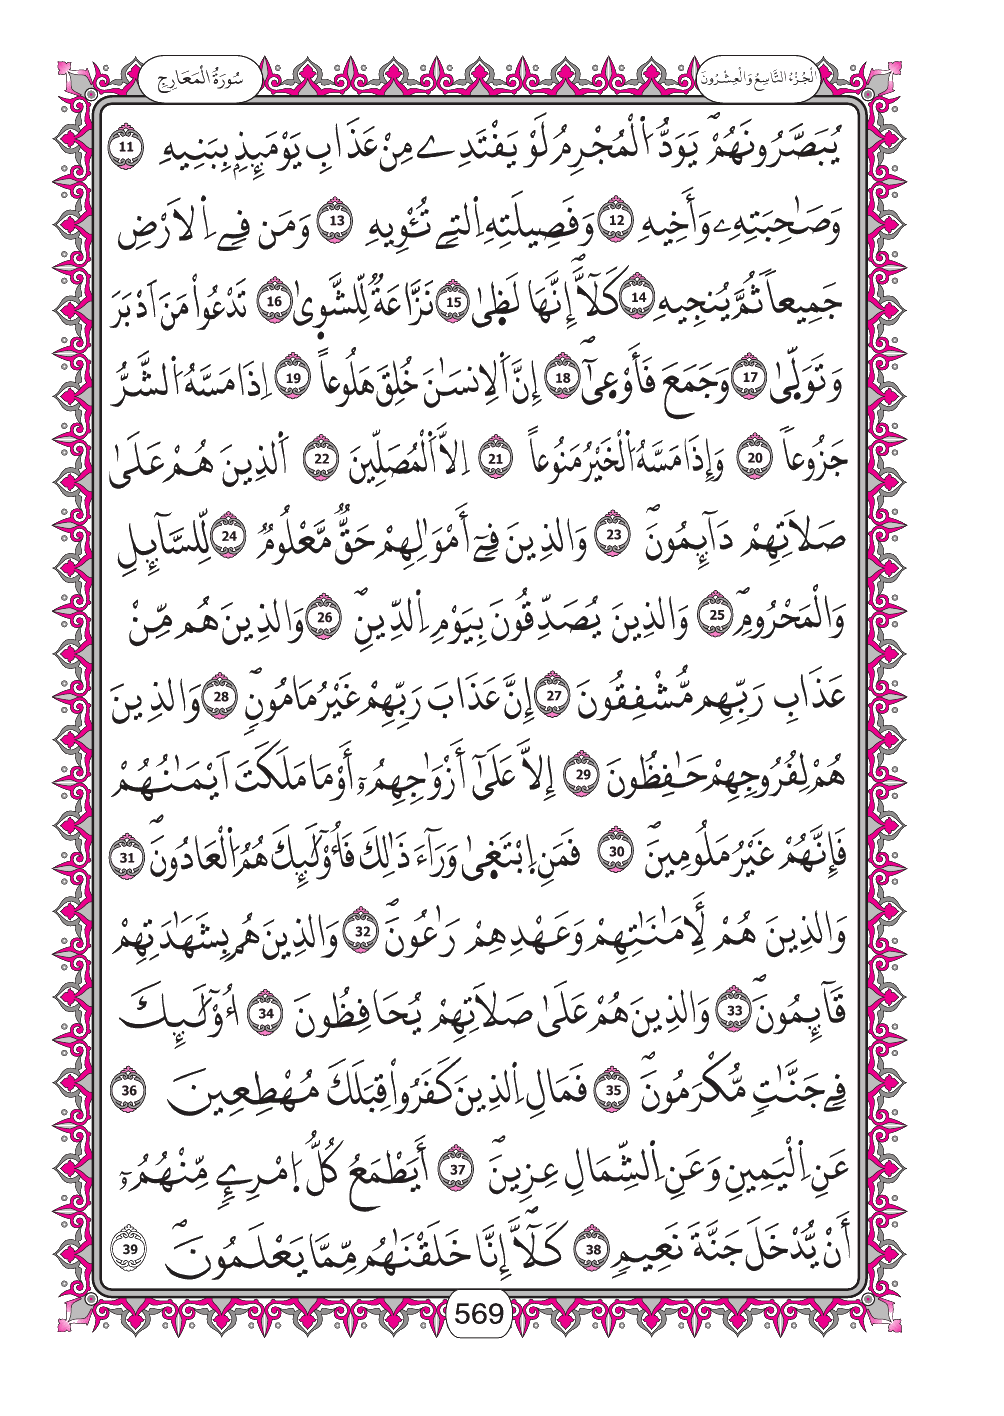 سُورَةُ الْمَعَارِجِ
الْجُزْءُ التَّاسِعُ وَالْعِشْرُونَ
يُبَصَّرُونَهُمْۖ يَوَدُّ اُ۬لْمُجْرِمُ لَوْ يَفْتَدِے مِنْ عَذَابِ يَوْمَئِذِۢ بِبَنِيهِ 11
وَصَٰحِبَتِهِۦ وَأَخِيهِ 12 وَفَصِيلَتِهِ اِ۬لتِے تُـْٔوِيهِ 13 وَمَن فِے اِ۬لَارْضِ
جَمِيعاٗ ثُمَّ يُنجِيهِ 14 كَلَّآۖ إِنَّهَا لَظ۪يٰ 15 نَزَّاعَةٞ لِّلشَّو۪يٰ 16 تَدْعُواْ مَنَ اَدْبَرَ
وَتَوَلّ۪يٰ 17 وَجَمَعَ فَأَوْع۪يٰٓۖ 18 إِنَّ اَ۬لِانسَٰنَ خُلِقَ هَلُوعاً 19 اِذَا مَسَّهُ اُ۬لشَّرُّ
جَزُوعاٗ 20 وَإِذَا مَسَّهُ اُ۬لْخَيْرُ مَنُوعاً 21 اِلَّا اَ۬لْمُصَلِّينَ 22 اَ۬لذِينَ هُمْ عَلَىٰ
صَلَاتِهِمْ دَآئِمُونَۖ 23 وَالذِينَ فِےٓ أَمْوَٰلِهِمْ حَقّٞ مَّعْلُومٞ 24 لِّلسَّآئِلِ
وَالْمَحْرُومِۖ 25 وَالذِينَ يُصَدِّقُونَ بِيَوْمِ اِ۬لدِّينِۖ 26 وَالذِينَ هُم مِّنْ
عَذَابِ رَبِّهِم مُّشْفِقُونَ 27 إِنَّ عَذَابَ رَبِّهِمْ غَيْرُ مَامُونٖۖ 28 وَالذِينَ
هُمْ لِفُرُوجِهِمْ حَٰفِظُونَ 29 إِلَّا عَلَىٰٓ أَزْوَٰجِهِمُۥٓ أَوْ مَا مَلَكَتَ اَيْمَٰنُهُمْ
فَإِنَّهُمْ غَيْرُ مَلُومِينَۖ 30 فَمَنِ اِ۪بْتَغ۪يٰ وَرَآءَ ذَٰلِكَ فَأُوْلَٰٓئِكَ هُمُ اُ۬لْعَادُونَۖ 31
وَالذِينَ هُمْ لِأَمَٰنَٰتِهِمْ وَعَهْدِهِمْ رَٰعُونَۖ 32 وَالذِينَ هُم بِشَهَٰدَتِهِمْ
قَآئِمُونَۖ 33 وَالذِينَ هُمْ عَلَىٰ صَلَاتِهِمْ يُحَافِظُونَ 34 أُوْلَٰٓئِكَ
فِے جَنَّٰتٖ مُّكْرَمُونَۖ 35 فَمَالِ اِ۬لذِينَ كَفَرُواْ قِبَلَكَ مُهْطِعِينَ 36
عَنِ اِ۬لْيَمِينِ وَعَنِ اِ۬لشِّمَالِ عِزِينَۖ 37 أَيَطْمَعُ كُلُّ اُ۪مْرِےٕٖ مِّنْهُمُۥٓ
أَنْ يُّدْخَلَ جَنَّةَ نَعِيمٖ 38 كَلَّآۖ إِنَّا خَلَقْنَٰهُم مِّمَّا يَعْلَمُونَۖ 39
569